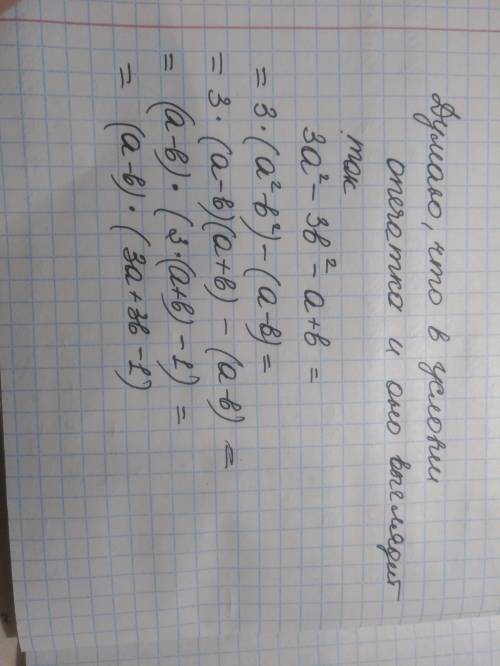 Думаю, что в условии
опечатка и оно выглядит
так
3a² - 3b² - a + b =
= 3·(a² - b²) - (a - b) =
= 3·(a - b)(a + b) - (a - b) =
= (a - b)·(3·(a + b) - 1) =
= (a - b)·(3a + 3b - 1)